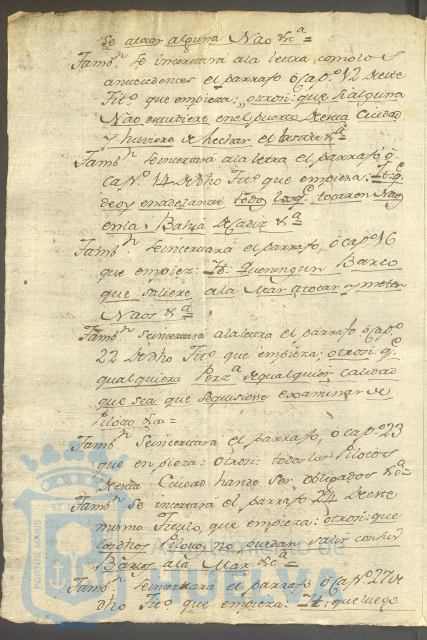 se atoar alguna Nao &cª =
Tambn. se insertará ala letra, como los
antecedentes el parrafo ó cap.º 12 de este
Titº que empieza: otrosi: que si alguna
Nao estuviere en el puerto de esta Ciudad
y huviere de hechar el lastre &ª
Tambn. se insertará ala letra el parrafo ó
capº 14 de dho Titº que empieza: It. q.e
de oy en adelante todos los q.e tocaren Naos
en la Bahia de Cadiz &ª
Tambn. se insertará el parrafo, ó capº 16
que empiez: It. que ningun Barco
que saliere ala Mar atocar y meter
Naos &ª
Tambn. se insertará ala letra el parrafo ó capº
22 de dho Titº que empieza: otrosi: q.e
qualquiera Perzª de qualquier calidad
que sea que se quisiere examinar de
Piloto &ª =
Tambn. se insertará el parrafo, ó cap. 23
que empieza: otrosi: todos los Pilotos
de esta Ciudad han de ser obligados &ª
Tambn. se insertará el parrafo 24 de este
mismo Titulo, que empieza: otrosi: que
los dhos Pilotos no puedan salir con sus
Barcos ala Mar &cª =
Tambn. se insertará el parrafo ó capº 27 de
dho Titº que empieza: It. que luego
PORTUS MARIS ET TER
Ayuntamiento de
HUELVA